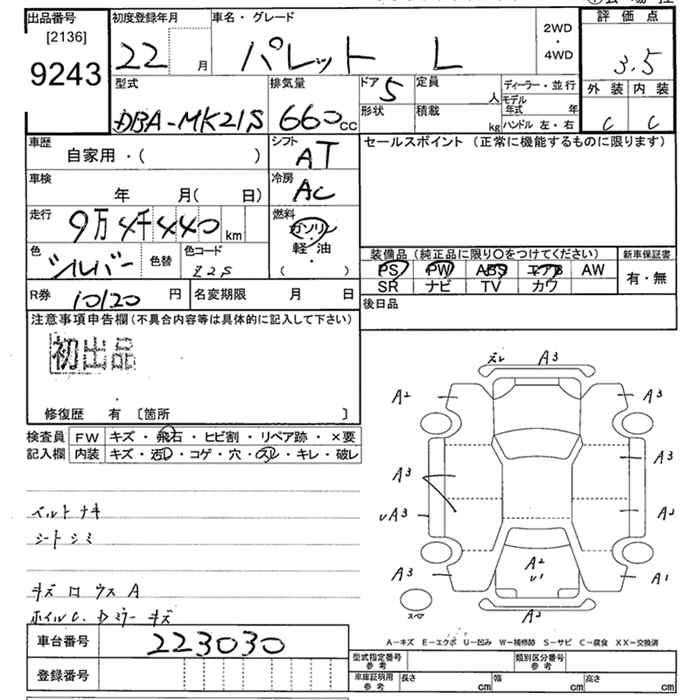 出品番号
[2136]
9243
初度登録年月
22 月
車名・グレード
パレット L
2WD
・
4WD
評価点
3.5
外装 内装
C C
型式
DBA-MK21S
排気量
660cc
ドア 5
形状
定員
人
積載
kg
ディーラー・並行
モデル
年式 年
ハンドル 左・右
車歴
自家用・( )
シフト
AT
セールスポイント (正常に機能するものに限ります)
車検
年 月( 日)
冷房
AC
走行
9万4千440km
燃料
ガソリン
軽・油
( ・ )
色
シルバー
色替
色コード
Z2S
装備品 (純正品に限り〇をつけてください)
新車保証書
PS PW ABS エアB AW
SR ナビ TV カワ
有・無
R券
10120円
名変期限 月 日
後日品
注意事項申告欄 (不具合内容等は具体的に記入して下さい)
初出品
修復歴 有 [箇所 ]
検査員
記入欄
FW キズ・飛石・ヒビ割・リペア跡・×要
内装 キズ・汚レ・コゲ・穴・スレ・キレ・破レ
ベルトナキ
シートシミ
キズロウスA
ホイルC. Dミラーキズ
ズレ A3
A2 A3
A3 A3
レA3 A2
A3 A2 A1
レ1
スペア
A2
A-キズ E-エクボ U-凹み W-補修跡 S-サビ C-腐食 XX-交換済
車台番号
223030
登録番号
型式指定番号
参考
類別区分番号
参考
車庫証明用
参考
長さ cm
幅 cm
高さ cm